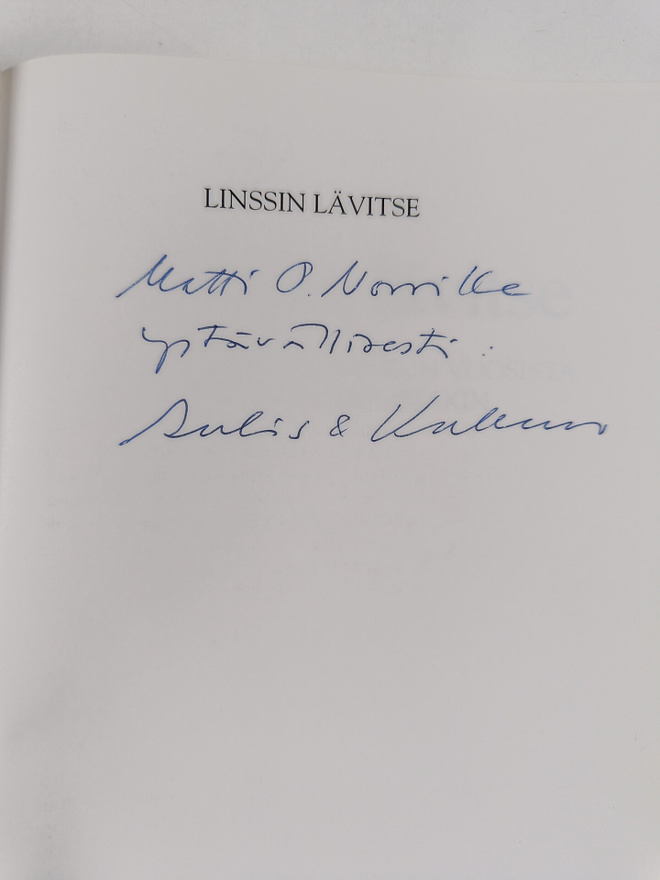 LINSSIN LÄVITSE
Matti O. Nonrille
ystävällisesti
Aulis &